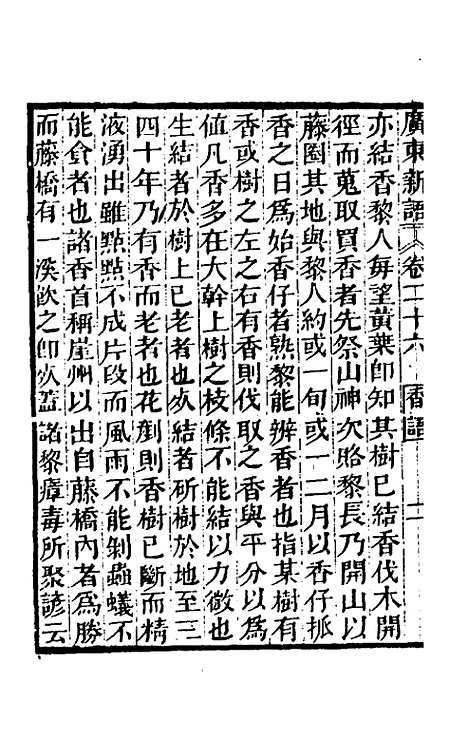 廣東新語 卷二十六 香語 二
亦結香黎人每望黃葉卽知其樹已結香伐木開
徑而蒐取買香者先祭山神次賂黎長乃開山以
藤圈其地與黎人約或一旬或一二月以香仔抓
香之日爲始香仔者熟黎能辨香者也指某樹有
香或樹之左之右有香則伐取之香與平分以爲
値凡香多在大幹上樹之枝條不能結以力微也
生結者於樹上已老者也死結者斫樹於地至三
四十年乃有香而老者也花剷則香樹已斷而精
液湧出雖點點不成片段而風雨不能剝蟲蟻不
能食者也諸香首稱崖州以出自藤橋內者爲勝
而藤橋有一溪飮之卽死蓋諸黎瘴毒所聚諺云